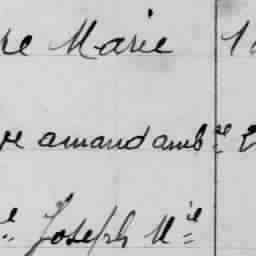 re Marie 1
re amand amb^re
e Joseph M^ie